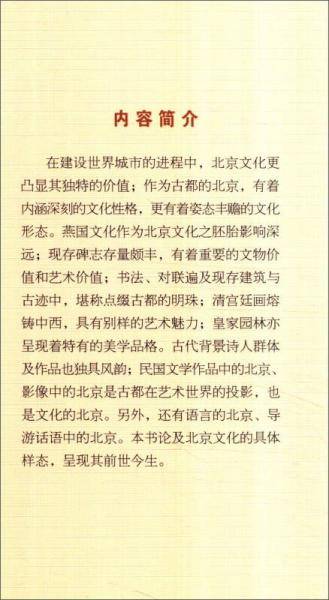 内容简介
在建设世界城市的进程中，北京文化更
凸显其独特的价值；作为古都的北京，有着
内涵深刻的文化性格，更有着姿态丰赡的文化
形态。燕国文化作为北京文化之胚胎影响深
远；现存碑志存量颇丰，有着重要的文物价
值和艺术价值；书法、对联遍及现存建筑与
古迹中，堪称点缀古都的明珠；清宫廷画熔
铸中西，具有别样的艺术魅力；皇家园林亦
呈现着特有的美学品格。古代背景诗人群体
及作品也独具风韵；民国文学作品中的北京、
影像中的北京是古都在艺术世界的投影，也
是文化的北京。另外，还有语言的北京、导
游话语中的北京。本书论及北京文化的具体
样态，呈现其前世今生。